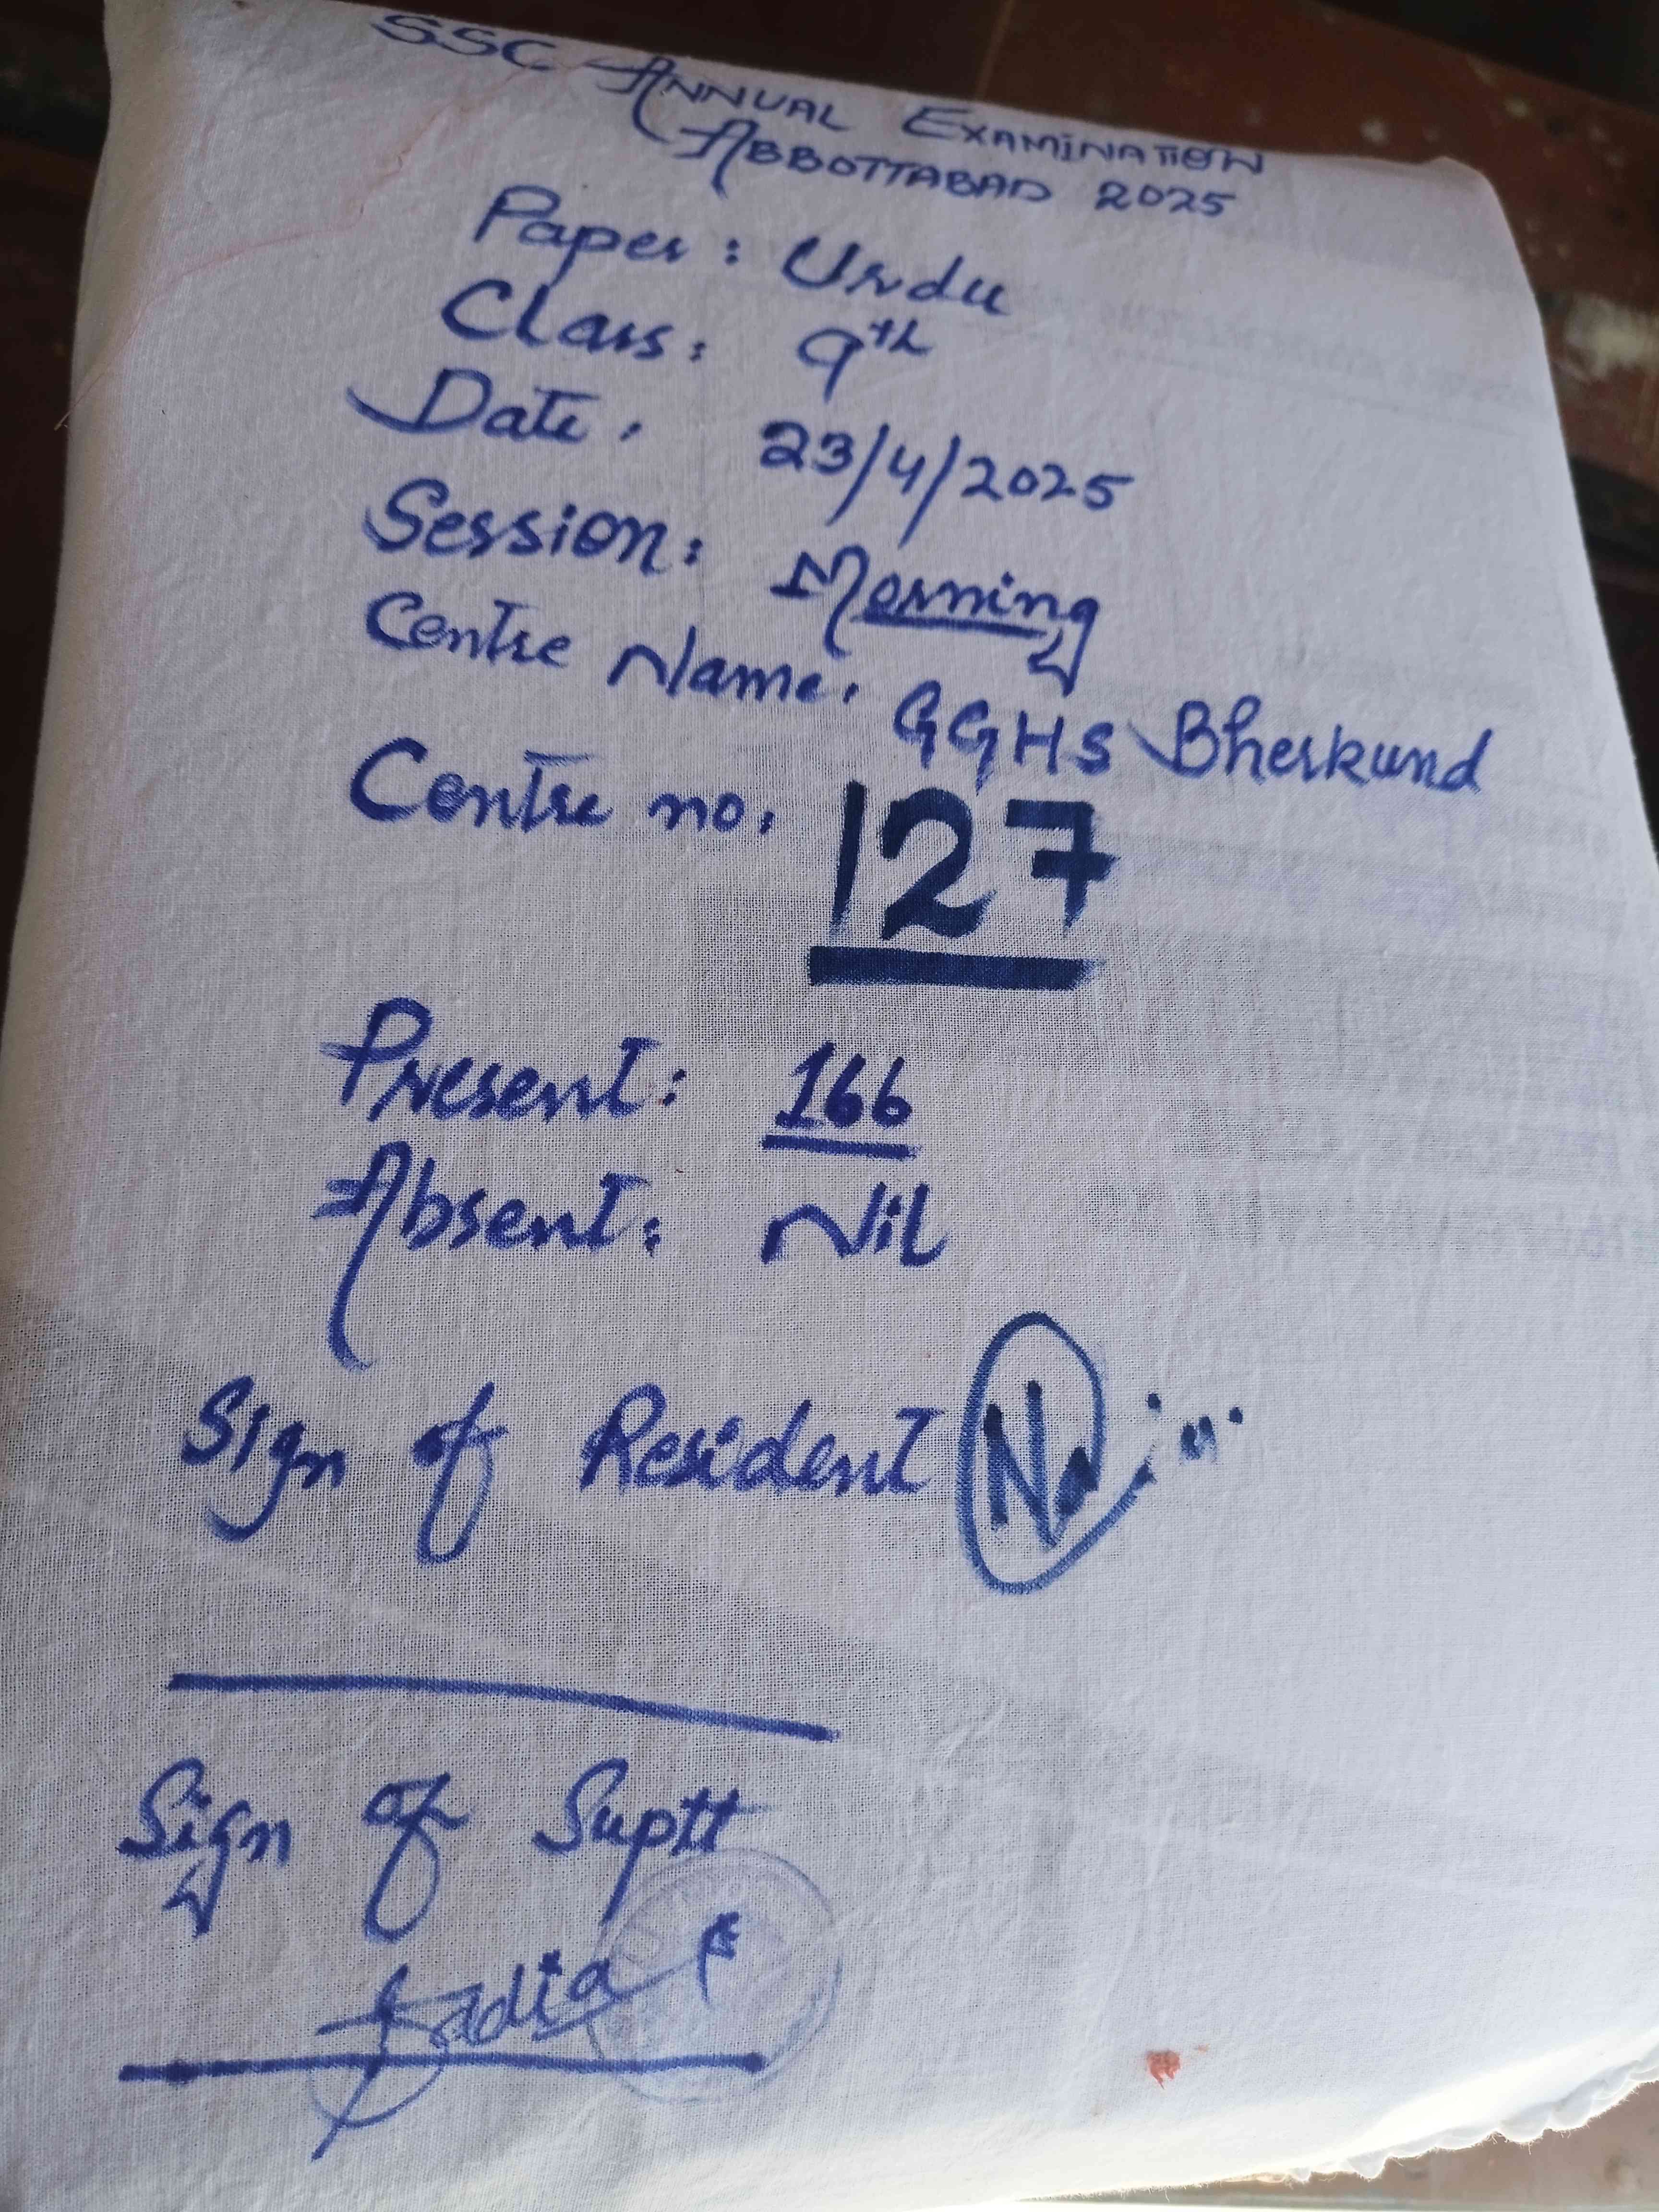 SSC ANNUAL EXAMINATION
ABBOTTABAD 2025
Paper: Urdu
Class: 9th
Date. 23/4/2025
Session: Morning
Centre Name. GGHS Bherkund
Centre no. 127
Present: 166
Absent: Nil
Sign of Resident
Sign of Suptt